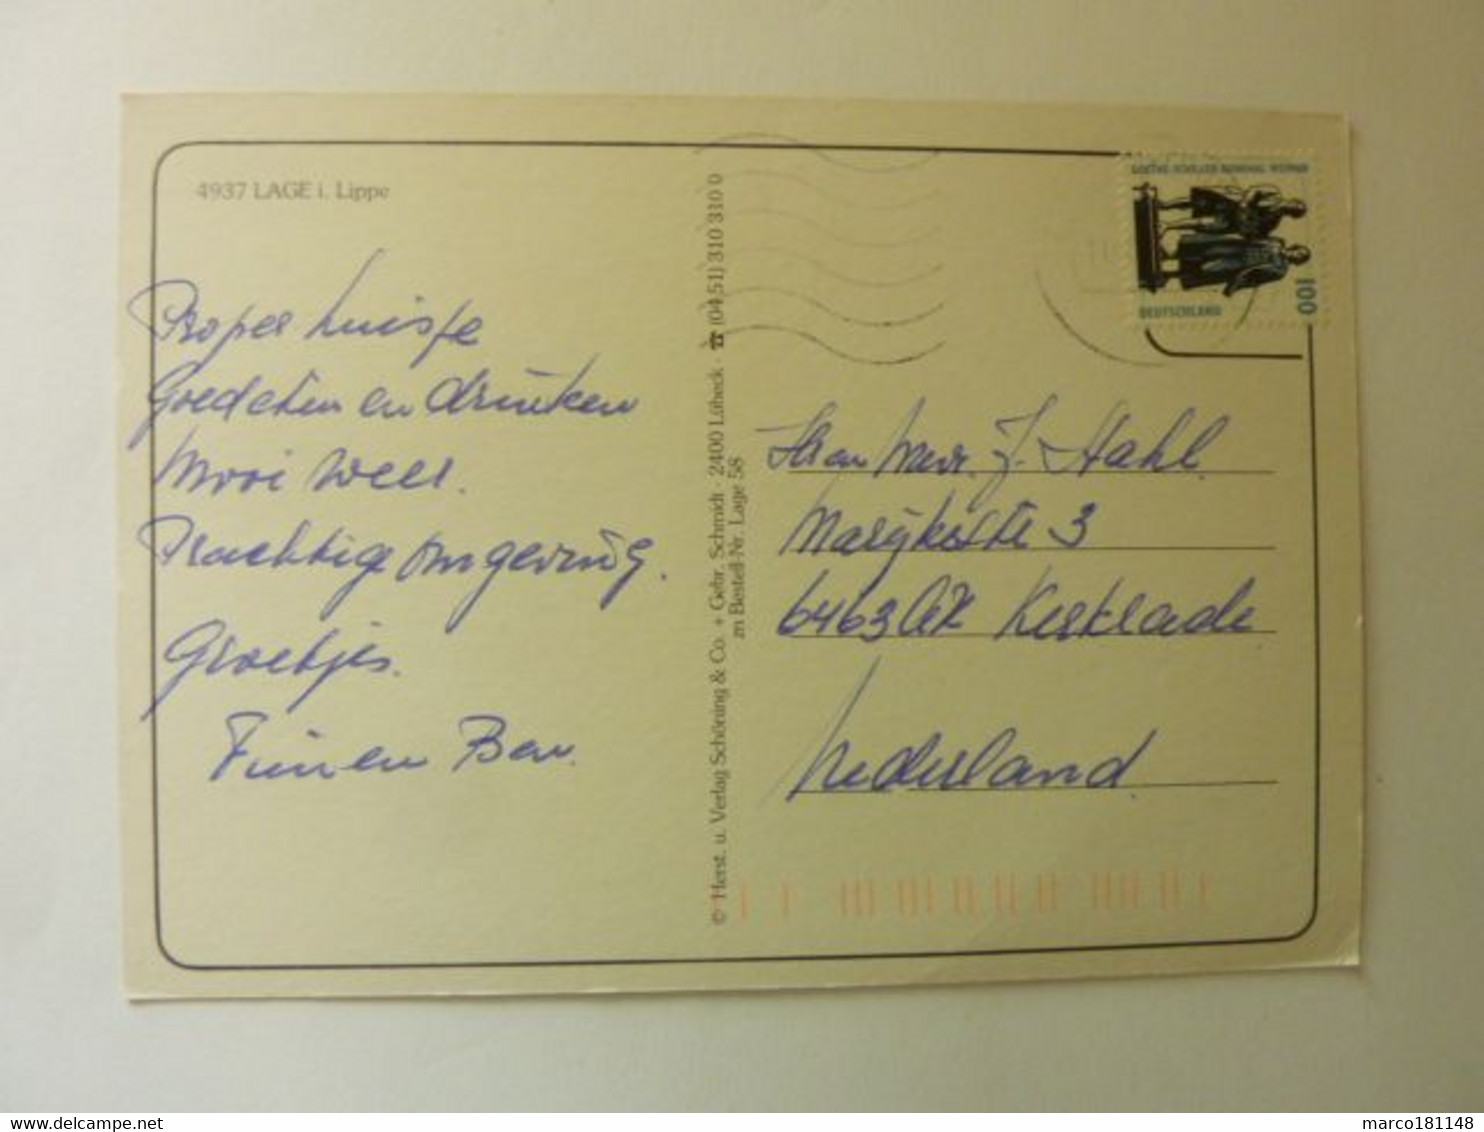 4937 LAGE i. Lippe
Proper huisje
Goed eten en drinken
Mooi weer.
Prachtige omgeving.
Groetjes.
Fini en Ben.
© Herst. u. Verlag Schöning & Co. + Gebr. Schmidt · 2400 Lübeck · ☎ (04 51) 310 310 0
zn Bestell-Nr. Lage 58
GOETHE-SCHILLER-DENKMAL WEIMAR
100
DEUTSCHLAND
Hr en Mevr. J. Stahl
Marijkestr 3
6463 Kerkrade
Nederland
marco181148